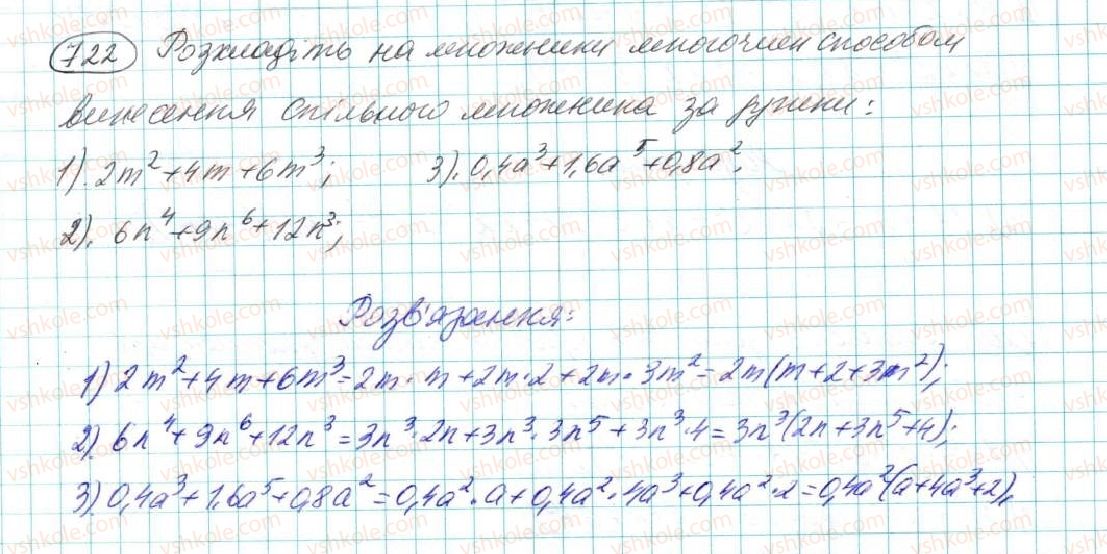 722 Розкладіть на множники многочлен способом
винесення спільного множника за дужки:
1). 2m² + 4m + 6m³; 3). 0,4a³ + 1,6a⁵ + 0,8a².
2). 6n⁴ + 9n⁶ + 12n³;
Розв'язання:
1) 2m² + 4m + 6m³ = 2m · m + 2m · 2 + 2m · 3m² = 2m(m + 2 + 3m²);
2). 6n⁴ + 9n⁶ + 12n³ = 3n³ · 2n + 3n³ · 3n⁵ + 3n³ · 4 = 3n³(2n + 3n⁵ + 4);
3) 0,4a³ + 1,6a⁵ + 0,8a² = 0,4a² · a + 0,4a² · 4a³ + 0,4a² · 2 = 0,4a²(a + 4a³ + 2).